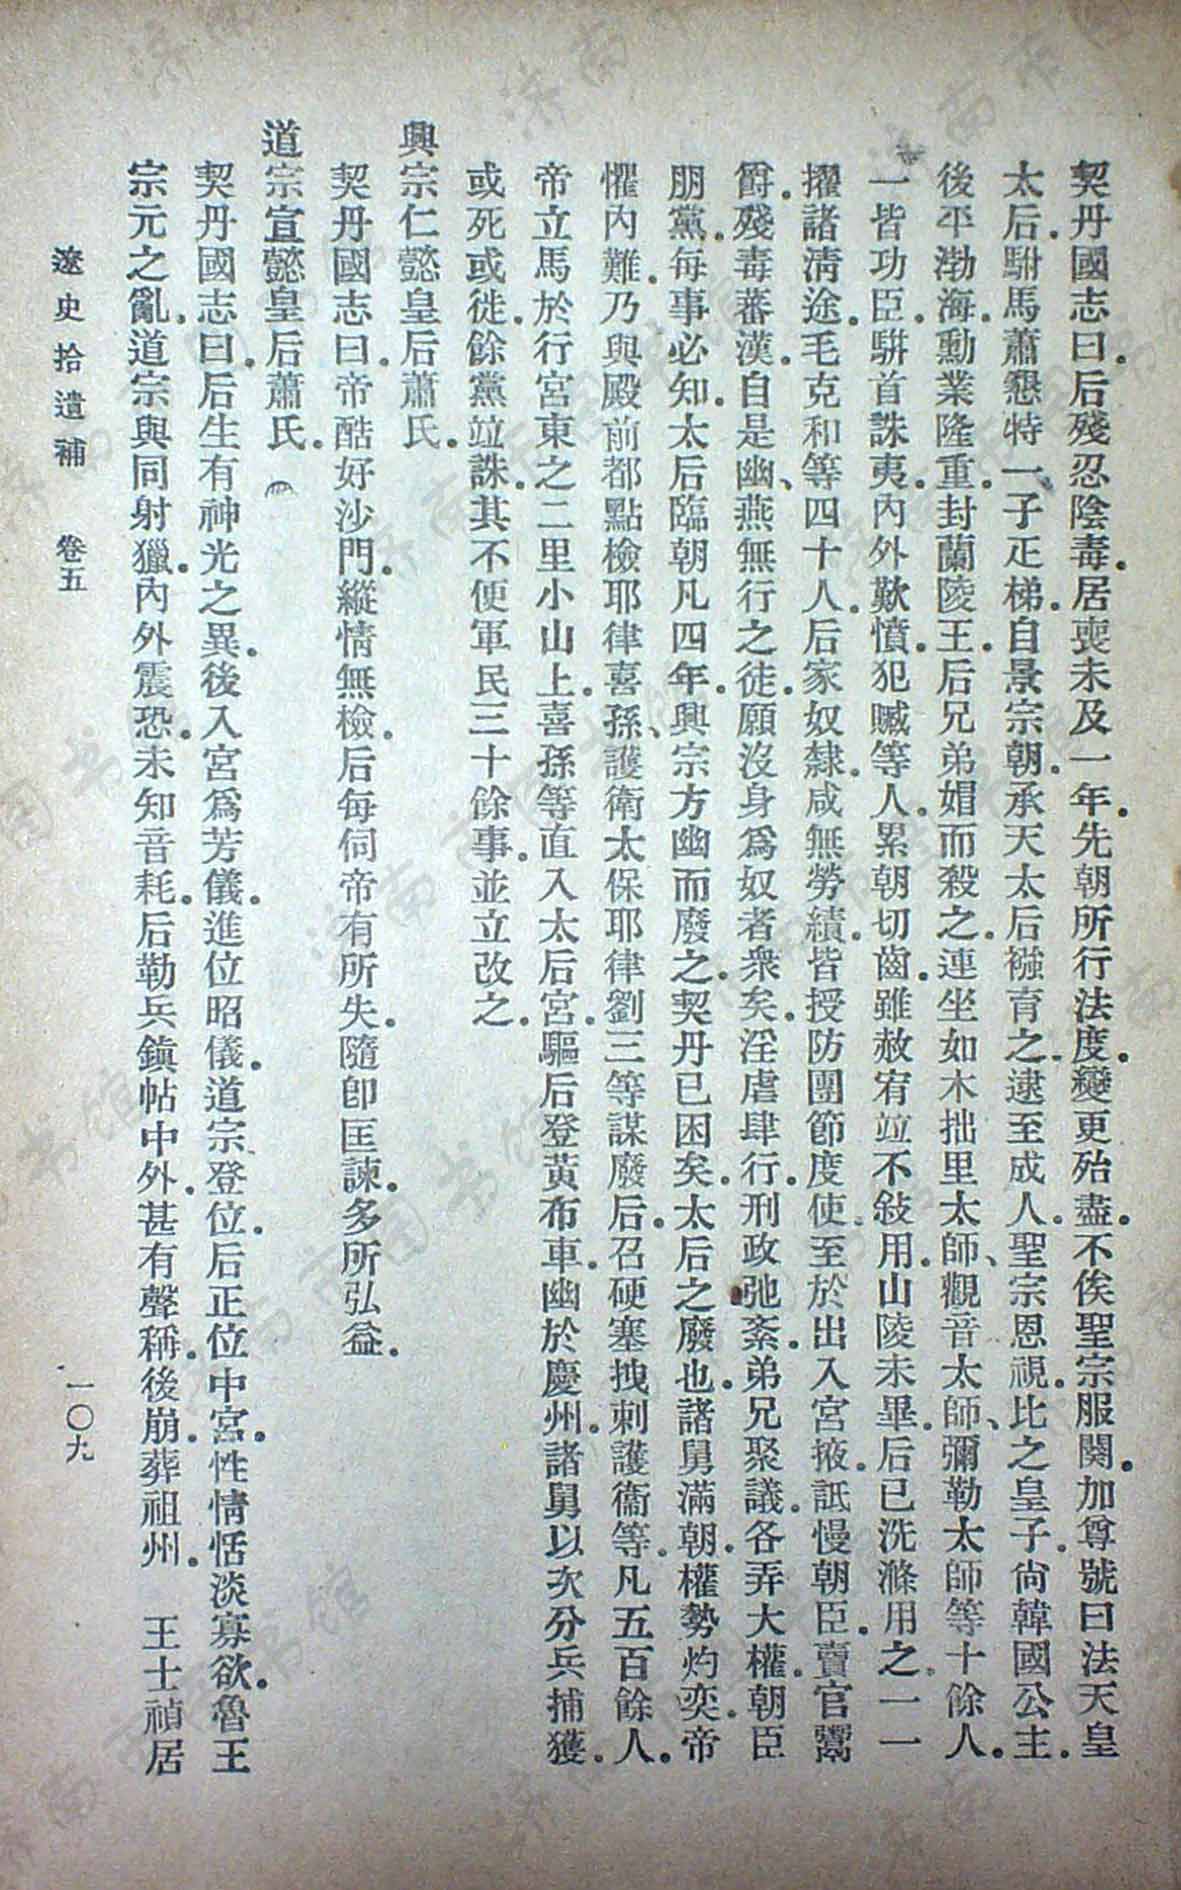 契丹國志曰。后殘忍陰毒。居喪未及一年。先朝所行法度。變更殆盡。不俟聖宗服闋。加尊號曰法天皇
太后。駙馬蕭懇特一子疋梯。自景宗朝。承天太后襁育之。逮至成人。聖宗恩視。比之皇子。尙韓國公主。
後平渤海。勳業隆重。封蘭陵王。后兄弟媢而殺之。連坐如木拙里太師、觀音太師、彌勒太師等十餘人。
一皆功臣。騈首誅夷。內外歎憤。犯贓等人。累朝切齒。雖赦宥竝不敍用。山陵未畢。后已洗滌用之。一一
擢諸淸途。毛克和等四十人。后家奴隸。咸無勞績。皆授防團節度使。至於出入宮掖。詆慢朝臣。賣官鬻
爵。殘毒蕃漢。自是幽、燕無行之徒。願沒身爲奴者衆矣。淫虐肆行。刑政弛紊。弟兄聚議。各弄大權。朝臣
朋黨。每事必知。太后臨朝凡四年。興宗方幽而廢之。契丹已困矣。太后之廢也。諸舅滿朝。權勢灼奕。帝
懼內難。乃與殿前都點檢耶律喜孫、護衛太保耶律劉三等謀廢后。召硬塞拽刺護衞等。凡五百餘人。
帝立馬於行宮東之二里小山上。喜孫等直入太后宮。驅后登黃布車。幽於慶州。諸舅以次分兵捕獲。
或死或徙。餘黨竝誅。其不便軍民三十餘事。並立改之。
興宗仁懿皇后蕭氏。
契丹國志曰。帝酷好沙門。縱情無檢。后每伺帝有所失。隨卽匡諫。多所弘益。
道宗宣懿皇后蕭氏。
契丹國志曰。后生有神光之異。後入宮爲芳儀。進位昭儀。道宗登位。后正位中宮。性情恬淡寡欲。魯王
宗元之亂。道宗與同射獵。內外震恐。未知音耗。后勒兵鎭帖中外。甚有聲稱。後崩。葬祖州。 王士禎居
遼史拾遺補 卷五 一〇九